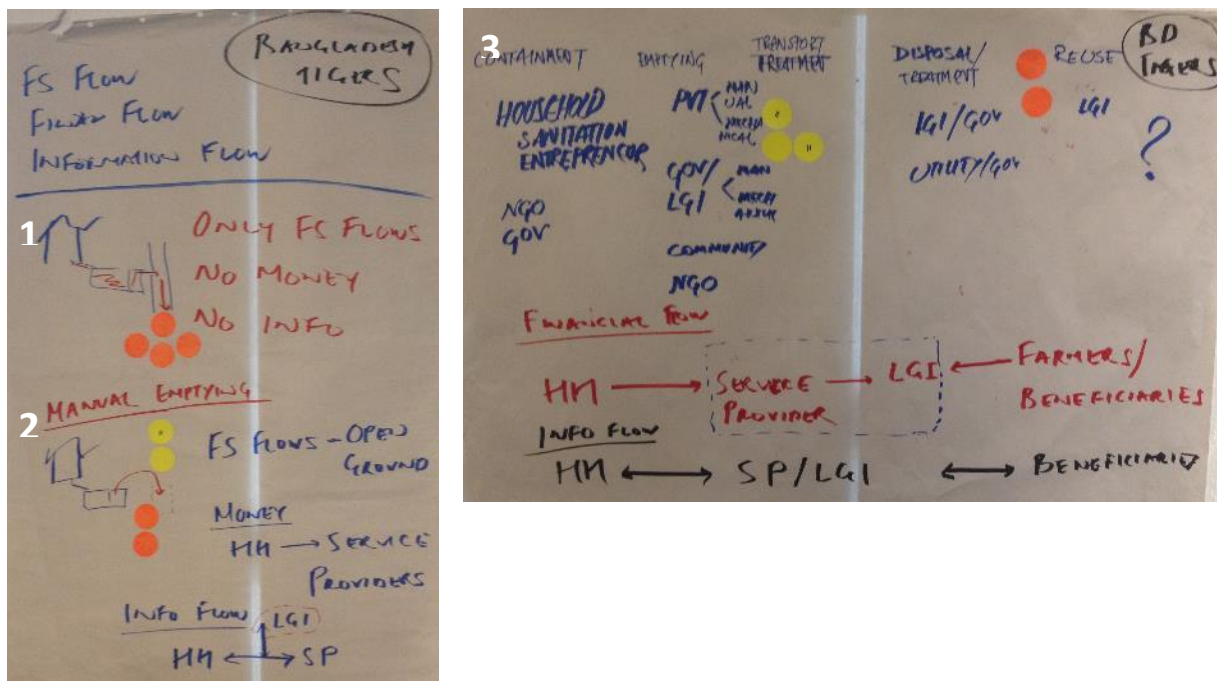 BANGLADESH
TIGERS
FS FLOW
FLOW
INFORMATION FLOW
1
ONLY FS FLOWS
NO MONEY
NO INFO
MANUAL EMPTYING
2
FS FLOWS - OPEN
GROUND
MONEY
HH → SERVICE
PROVIDERS
INFO FLOW
LGI
HH ↔ SP
3
CONTAINMENT
EMPTYING
TRANSPORT
TREATMENT
DISPOSAL/
TREATMENT
REUSE
BD
TIGERS
HOUSEHOLD
SANITATION
ENTREPRENEUR
NGO
GOV
PVT
MAN
UAL
MECHA
NICAL
GOV/
LGI
MAN
MECH
COMMUNITY
NGO
LGI/GOV
UTILITY/GOV
LGI
?
FINANCIAL FLOW
HH → SERVICE PROVIDER → LGI ← FARMERS/
BENEFICIARIES
INFO FLOW
HH ↔ SP/LGI ↔ BENEFICIARIES